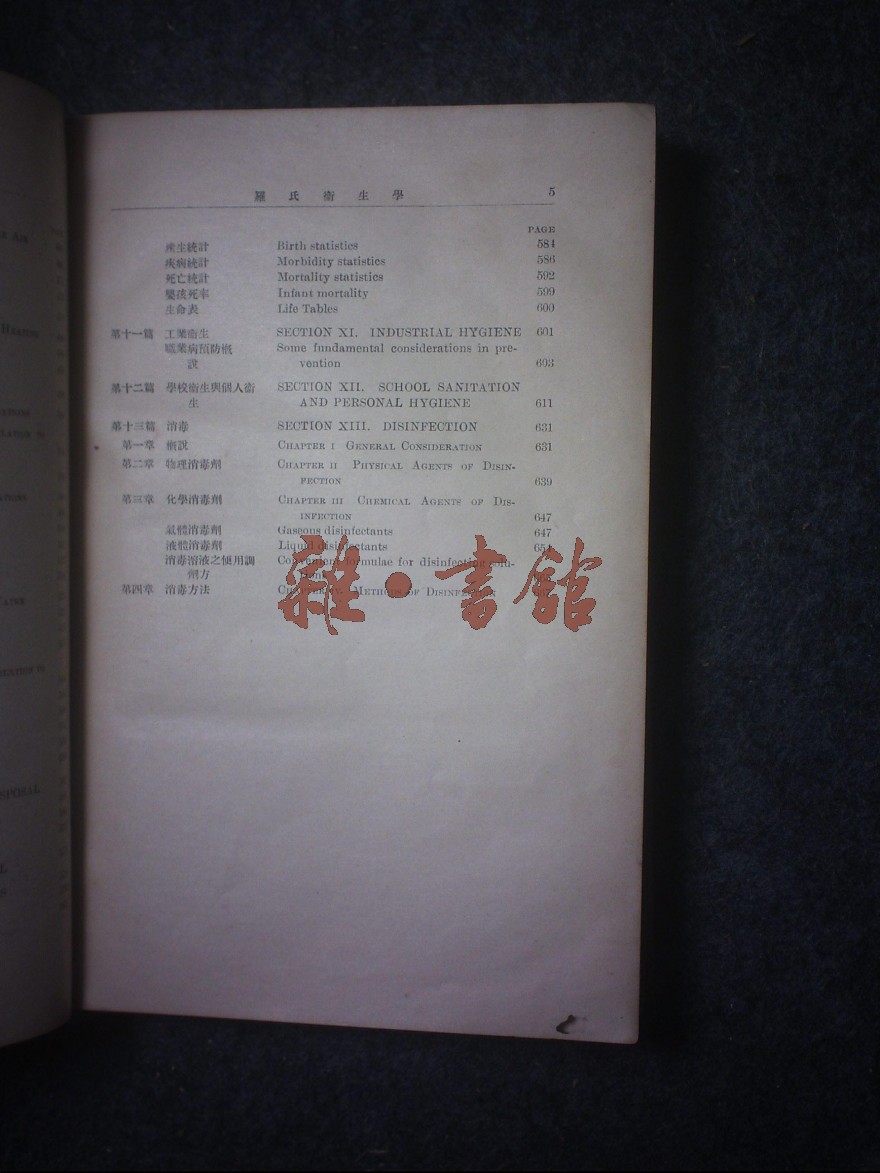 羅氏衞生學 5
PAGE
產生統計 Birth statistics 584
疾病統計 Morbidity statistics 586
死亡統計 Mortality statistics 592
嬰孩死率 Infant mortality 599
生命表 Life Tables 600
第十一篇 工業衞生 SECTION XI. INDUSTRIAL HYGIENE 601
職業病預防槪 Some fundamental considerations in pre-
說 vention 603
第十二篇 學校衞生與個人衞 SECTION XII. SCHOOL SANITATION
生 AND PERSONAL HYGIENE 611
第十三篇 消毒 SECTION XIII. DISINFECTION 631
第一章 槪說 CHAPTER I GENERAL CONSIDERATION 631
第二章 物理消毒劑 CHAPTER II PHYSICAL AGENTS OF DISIN-
FECTION 639
第三章 化學消毒劑 CHAPTER III CHEMICAL AGENTS OF DIS-
INFECTION 647
氣體消毒劑 Gaseous disinfectants 647
液體消毒劑 Liquid disinfectants
消毒溶液之便用調 Convenient formulae for disinfecting solu-
劑方
第四章 消毒方法 METHODS OF DISINFECTION
雜·書館